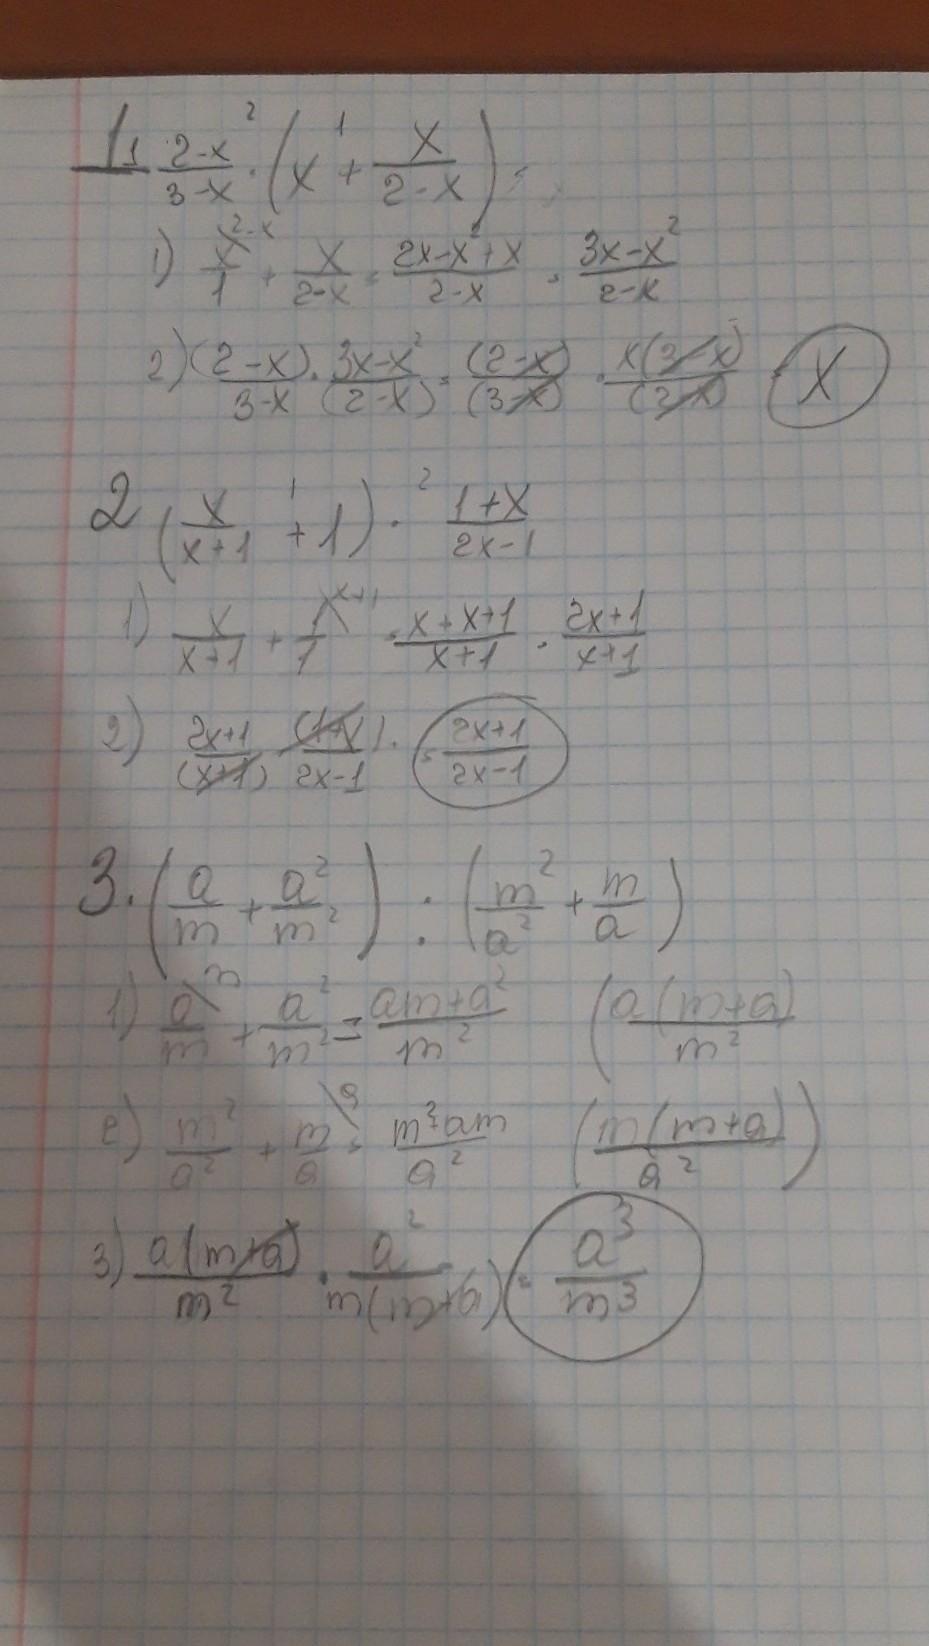 1. \frac{2-x}{3-x} \cdot^{2} (x +^{1} \frac{x}{2-x}) =
1) \frac{x^{\2-x}}{1} + \frac{x}{2-x} = \frac{2x-x^2+x}{2-x} = \frac{3x-x^2}{2-x}
2) \frac{(2-x)}{3-x} \cdot \frac{3x-x^2}{(2-x)} = \frac{(2-x)}{(3-x)} \cdot \frac{x(3-x)}{(2-x)} = x
2 (\frac{x}{x+1} +^{1} 1) \cdot^{2} \frac{1+x}{2x-1}
1) \frac{x}{x+1} + \frac{1^{\x+1}}{1} = \frac{x+x+1}{x+1} = \frac{2x+1}{x+1}
2) \frac{2x+1}{(x+1)} \cdot \frac{(1+x)}{2x-1} = \frac{2x+1}{2x-1}
3. (\frac{a}{m} + \frac{a^2}{m^2}) : (\frac{m^2}{a^2} + \frac{m}{a})
1) \frac{a^{\m}}{m} + \frac{a^2}{m^2} = \frac{am+a^2}{m^2} (\frac{a(m+a)}{m^2}
2) \frac{m^2}{a^2} + \frac{m^{\a}}{a} = \frac{m^2+am}{a^2} (\frac{m(m+a)}{a^2})
3) \frac{a(m+a)}{m^2} \cdot \frac{a^2}{m(m+a)} = \frac{a^3}{m^3}